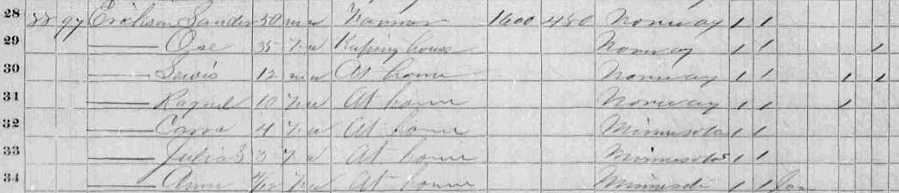 28 88 97 Erickson Sander 50 m w Farmer 1600 450 Norway / /
29 —— Ose 35 F w Keeping house Norway / / /
30 —— Lewis 12 m w At home Norway / / / /
31 —— Raguel 10 F w At home Norway / / /
32 —— 4 F w At home Minnesota / /
33 —— Julia 3 F w At home Minnesota / /
34 —— Ann F w At home / / Jan